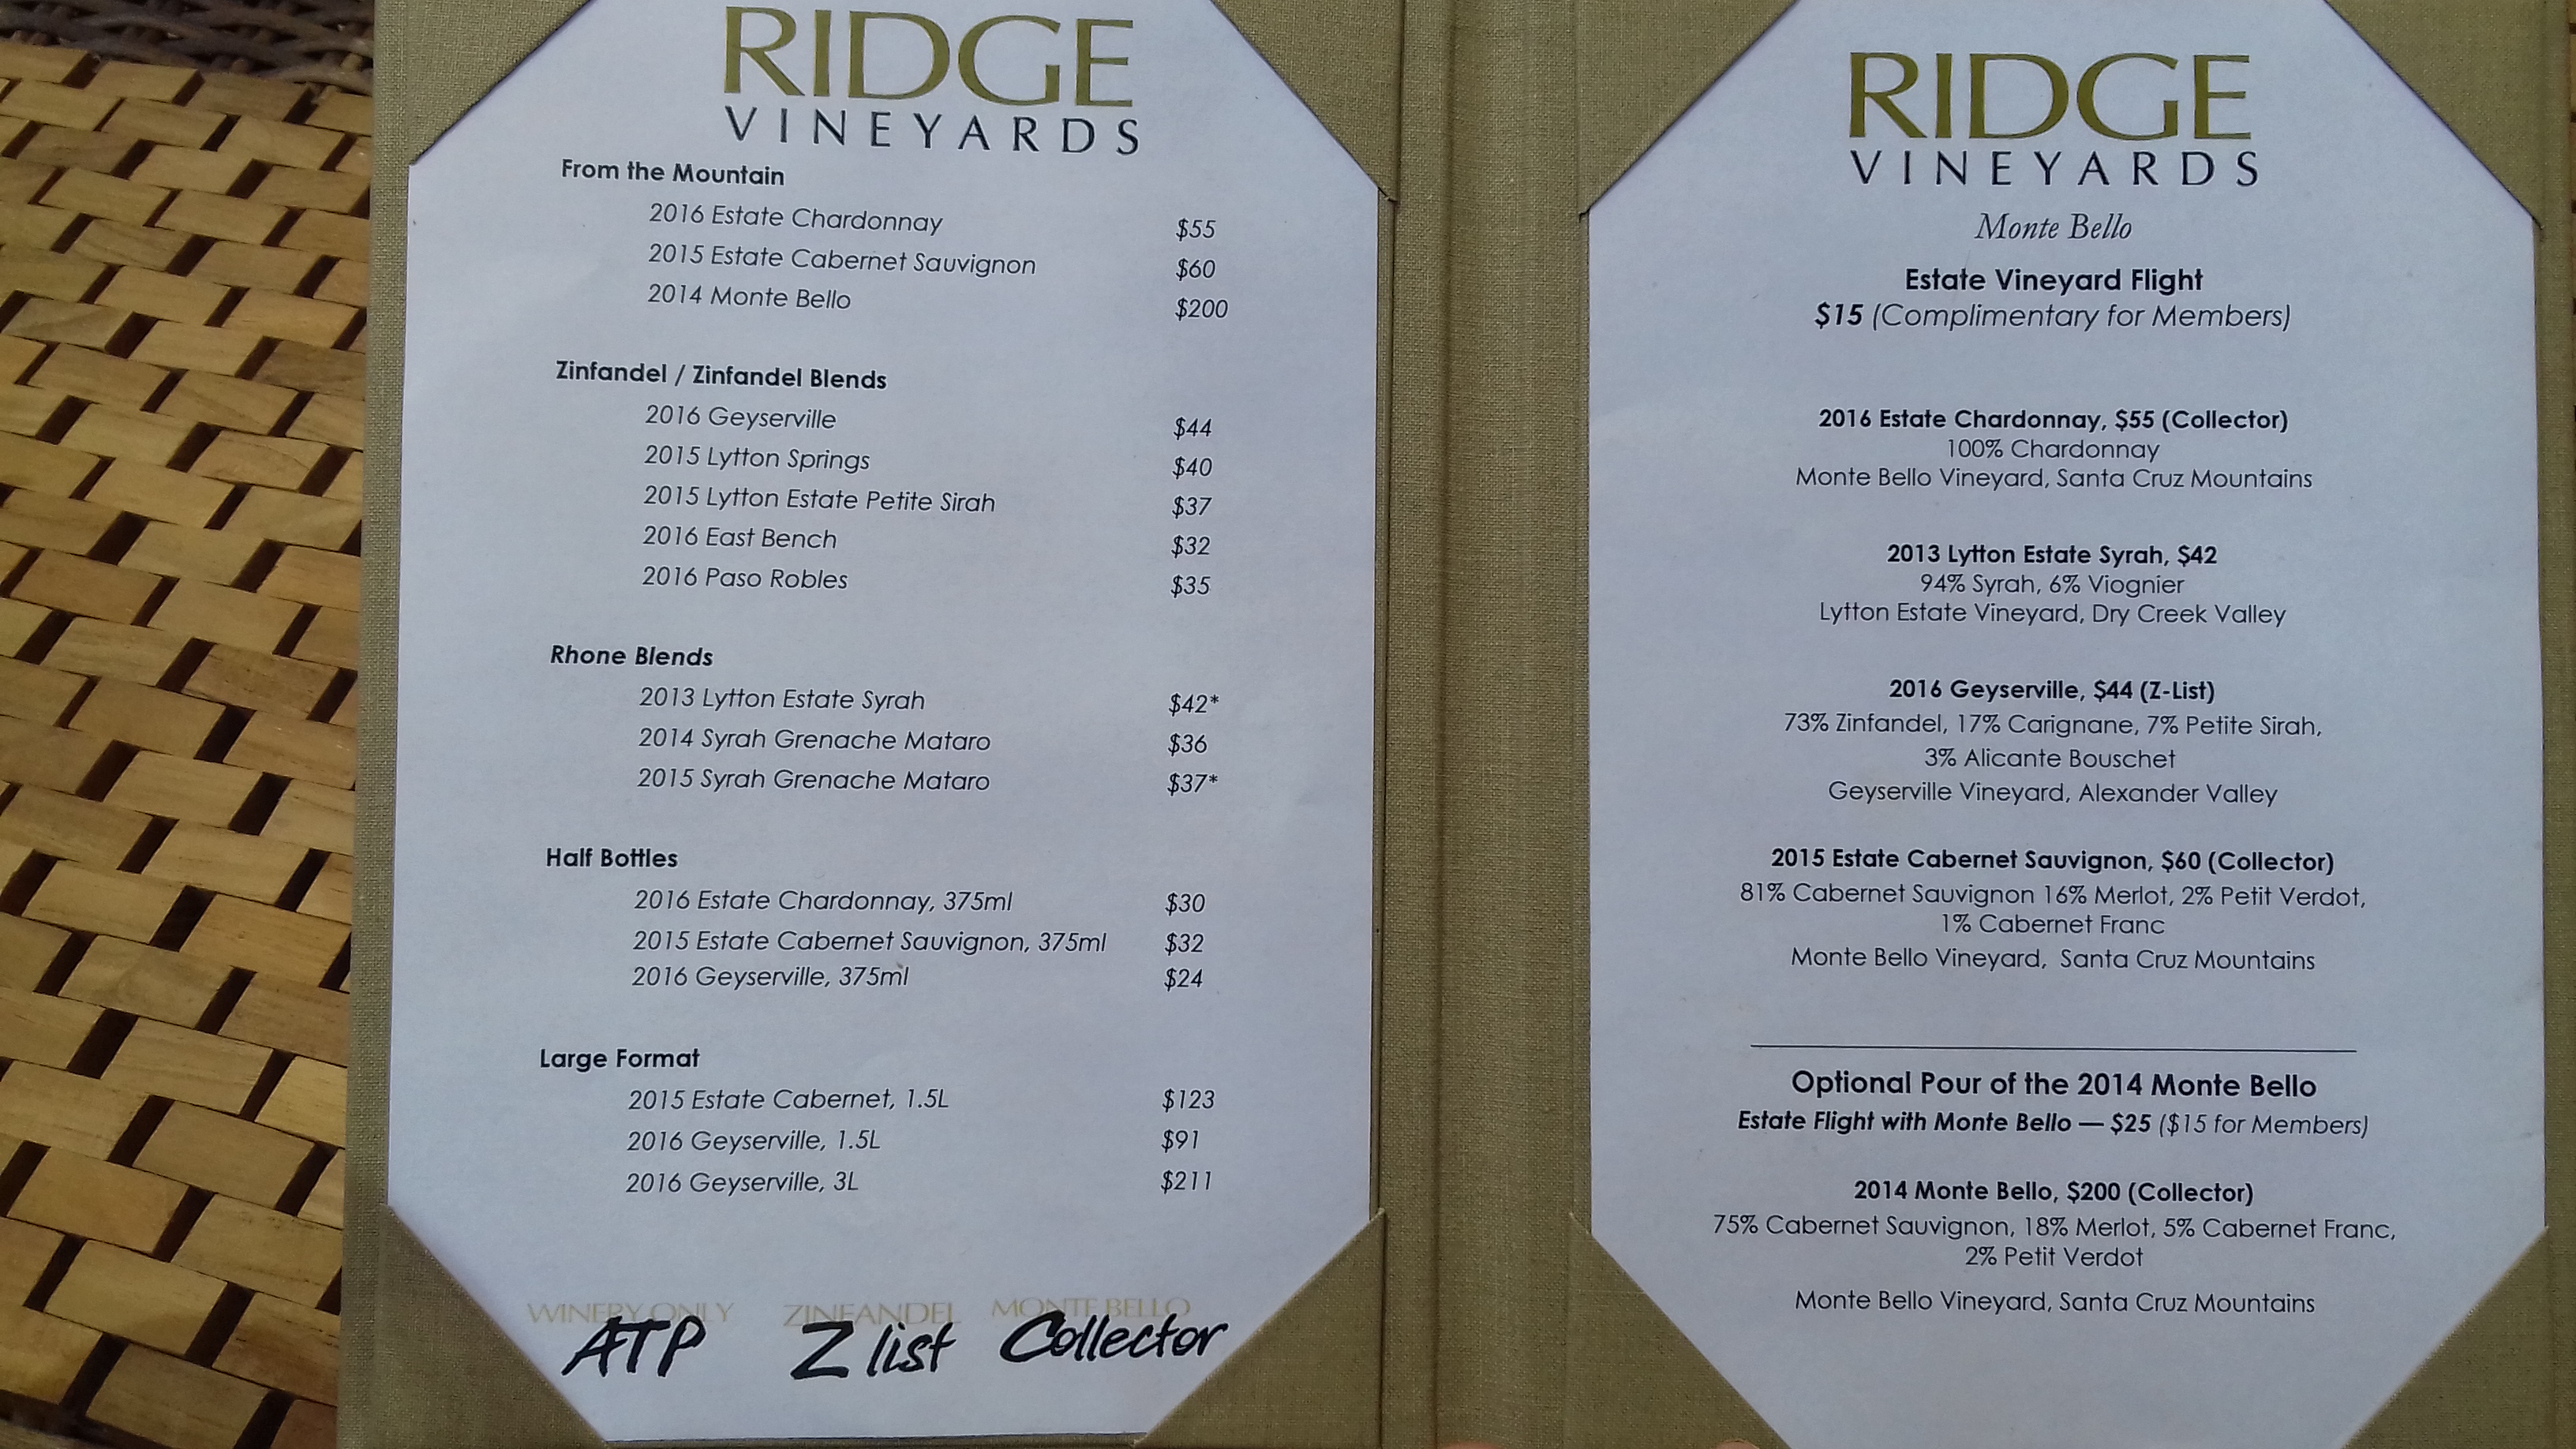 RIDGE
VINEYARDS
From the Mountain
2016 Estate Chardonnay $55
2015 Estate Cabernet Sauvignon $60
2014 Monte Bello $200
Zinfandel / Zinfandel Blends
2016 Geyserville $44
2015 Lytton Springs $40
2015 Lytton Estate Petite Sirah $37
2016 East Bench $32
2016 Paso Robles $35
Rhone Blends
2013 Lytton Estate Syrah $42*
2014 Syrah Grenache Mataro $36
2015 Syrah Grenache Mataro $37*
Half Bottles
2016 Estate Chardonnay, 375ml $30
2015 Estate Cabernet Sauvignon, 375ml $32
2016 Geyserville, 375ml $24
Large Format
2015 Estate Cabernet, 1.5L $123
2016 Geyserville, 1.5L $91
2016 Geyserville, 3L $211
WINERY ONLY ZINFANDEL MONTE BELLO
ATP Z list Collector
RIDGE
VINEYARDS
Monte Bello
Estate Vineyard Flight
$15 (Complimentary for Members)
2016 Estate Chardonnay, $55 (Collector)
100% Chardonnay
Monte Bello Vineyard, Santa Cruz Mountains
2013 Lytton Estate Syrah, $42
94% Syrah, 6% Viognier
Lytton Estate Vineyard, Dry Creek Valley
2016 Geyserville, $44 (Z-List)
73% Zinfandel, 17% Carignane, 7% Petite Sirah,
3% Alicante Bouschet
Geyserville Vineyard, Alexander Valley
2015 Estate Cabernet Sauvignon, $60 (Collector)
81% Cabernet Sauvignon 16% Merlot, 2% Petit Verdot,
1% Cabernet Franc
Monte Bello Vineyard, Santa Cruz Mountains
Optional Pour of the 2014 Monte Bello
Estate Flight with Monte Bello — $25 ($15 for Members)
2014 Monte Bello, $200 (Collector)
75% Cabernet Sauvignon, 18% Merlot, 5% Cabernet Franc,
2% Petit Verdot
Monte Bello Vineyard, Santa Cruz Mountains